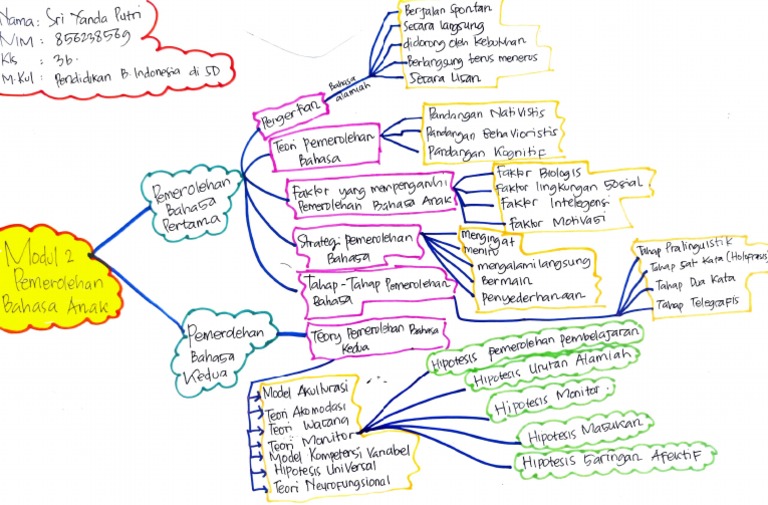 Nama: Sri Yanda Putri
NIM : 856238569
Kls : 3b.
M.Kul : Pendidikan B.Indonesia di SD
Modul 2
Pemerolehan
Bahasa Anak
Pemerolehan
Bahasa
Pertama
Pengertian
Bahasa
alamiah
Berjalan Spontan
Secara langsung
didorong oleh Kebutuhan
Berlangsung terus menerus
Secara Lisan
Teori Pemerolehan
Bahasa
Pandangan Nativistis
Pandangan Behavioristis
Pandangan Kognitif
Faktor yang mempengaruhi
Pemerolehan Bahasa Anak
Faktor Biologis
Faktor lingkungan Sosial
Faktor Intelegensi
Faktor Motivasi
Strategi Pemerolehan
Bahasa
mengingat
meniru
mengalami langsung
Bermain
Penyederhanaan
Tahap-Tahap Pemerolehan
Bahasa
Tahap Pralinguistik
Tahap Satu Kata (Holofrasis)
Tahap Dua Kata
Tahap Telegrafis
Pemerolehan
Bahasa
Kedua
Teory Pemerolehan Bahasa
Kedua
Model Akulturasi
Teori Akomodasi
Teori Wacana
Teori Monitor
Model Kompetensi Variabel
Hipotesis Universal
Teori Neurofungsional
Hipotesis pemerolehan pembelajaran
Hipotesis Urutan Alamiah
Hipotesis Monitor.
Hipotesis Masukan
Hipotesis Saringan Afektif